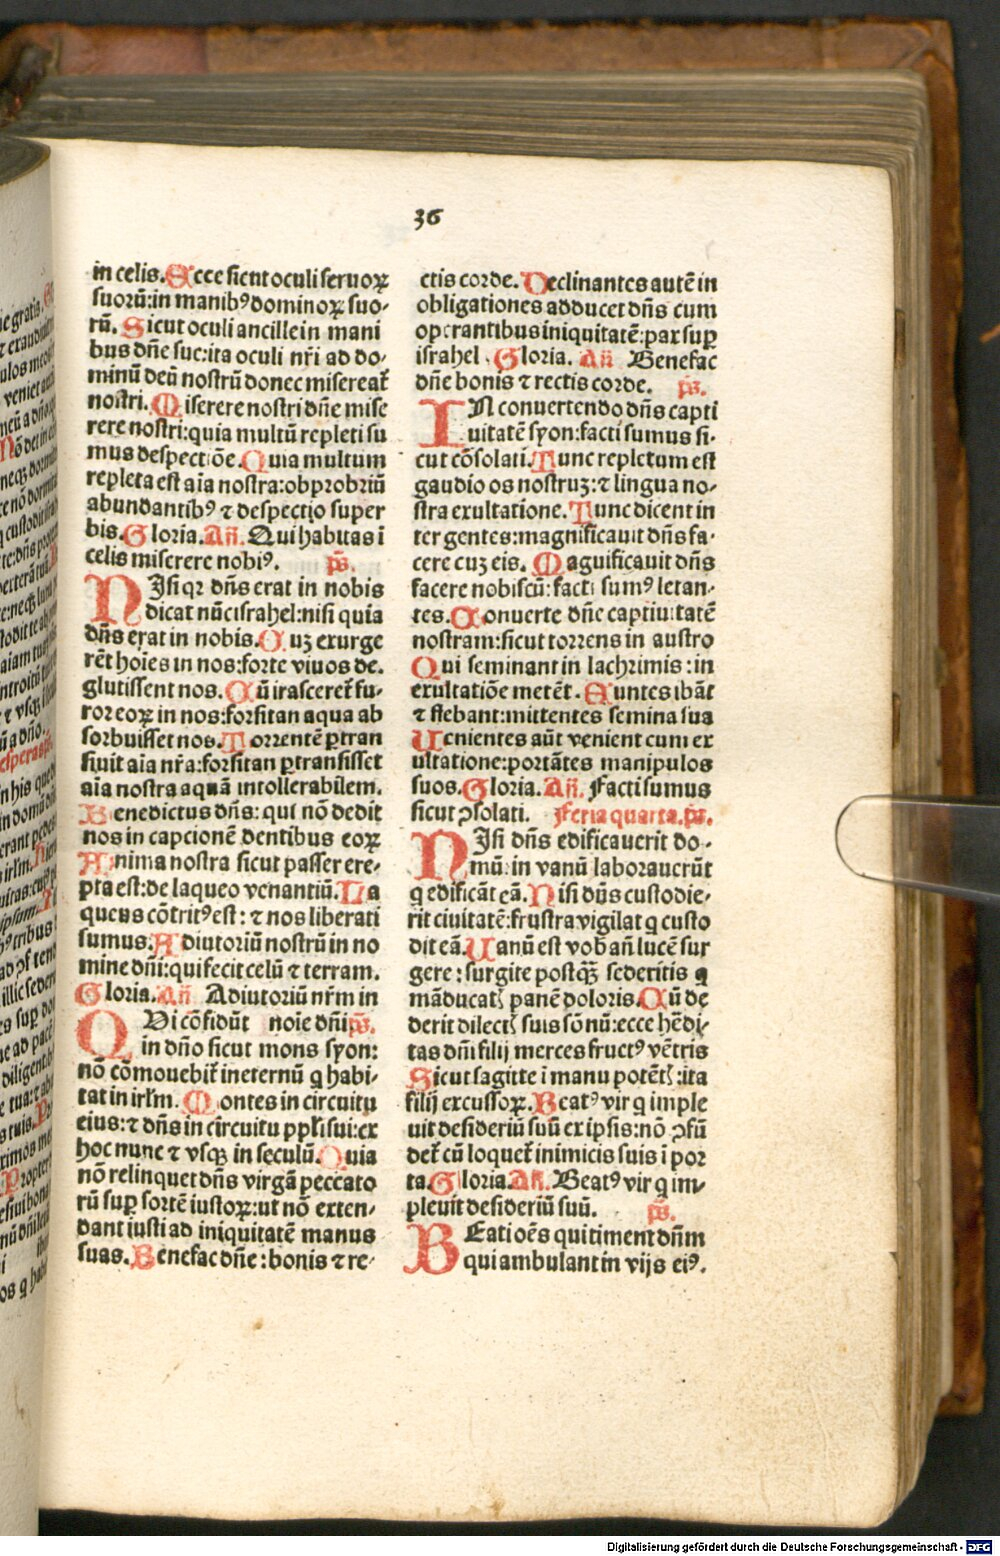 36
in celis. Ecce sicut oculi seruoꝝ
suorū: in manibꝰ dominoꝝ suo-
rū. Sicut oculi ancille in mani
bus dñe sue: ita oculi nr̄i ad do-
minū deū nostrū donec misereat̄
nostri. Miserere nostri dñe mise
rere nostri: quia multū repleti su
mus despectiōe. Quia multum
repleta est aīa nostra: obprobriū
abundantibꝰ ⁊ despectio super
bis. Gloria. Añ. Qui habitas i
celis miserere nobiꝰ. ps̄.
NIsi qꝛ dñs erat in nobis
dicat nūc israhel: nisi quia
dñs erat in nobis. Cuꝫ exurge
rēt hoīes in nos: forte viuos de-
glutissent nos. Cū irasceret̄ fu-
ror eoꝝ in nos: forsitan aqua ab
sorbuisset nos. Torrentē ꝑtran
siuit aīa nr̄a: forsitan ꝑtransisset
aīa nostra aquā intollerabilem.
Benedictus dñs: qui nō dedit
nos in captionē dentibus eoꝝ
Anima nostra sicut passer ere-
pta est: de laqueo venantiū. La
queus cōtritꝰ est: ⁊ nos liberati
sumus. Adiutoriū nostrū in no
mine dñi: qui fecit celū ⁊ terram.
Gloria. Añ Adiutoriū nr̄m in
QVi cōfidūt noīe dñi ps̄.
in dño sicut mons syon:
nō cōmouebit̄ ineternū q habi-
tat in irl̄m. Montes in circuitu
eius: ⁊ dñs in circuitu ppl̄i sui: ex
hoc nunc ⁊ vsqꝫ in seculū. Quia
nō relinquet dñs virgā peccato
rū suꝑ sortē iustoꝝ: ut nō exten-
dant iusti ad iniquitatē manus
suas. Benefac dñe: bonis ⁊ re-
ctis corde. Declinantes autē in
obligationes adducet dñs cum
operantibus iniquitatē: pax suꝑ
israhel. Gloria. Añ Benefac
dñe bonis ⁊ rectis corde. ps̄.
IN conuertendo dñs capti
uitatē syon: facti sumus si-
cut cōsolati. Tunc repletum est
gaudio os nostruꝫ: ⁊ lingua no-
stra exultatione. Tunc dicent in
ter gentes: magnificauit dñs fa-
cere cuꝫ eis. Maguificauit dñs
facere nobiscū: facti sumꝰ letan-
tes. Conuerte dñe captiuitatē
nostram: sicut torrens in austro
Qui seminant in lachrimis: in
exultatiōe metēt. Euntes ibāt
⁊ flebant: mittentes semina sua
Uenientes aūt venient cum ex
ultatione: portātes manipulos
suos. Gloria. Añ. Facti sumus
sicut ꝯsolati. Feria quarta. ps̄.
NIsi dñs edificauerit do-
mū: in vanū laborauerūt
q edificāt eā. Nisi dñs custodie-
rit ciuitatē: frustra vigilat q custo
dit eā. Uanū est vob̄ añ lucē sur
gere: surgite postqꝫ sederitis q
māducatꝭ panē doloris. Cū de
derit dilectꝭ suis sōnū: ecce hēdi-
tas dñi filij merces fructꝰ vētris
Sicut sagitte i manu potētꝭ: ita
filij excussoꝝ. Beatꝰ vir q imple
uit desideriū suū ex ipsis: nō ꝯfū
det̄ cū loquet̄ inimicis suis i por
ta. Gloria. Añ. Beatꝰ vir q im-
pleuit desideriū suū. ps̄.
BEati oēs qui timent dñm
qui ambulant in vijs eiꝰ.
Digitalisierung gefördert durch die Deutsche Forschungsgemeinschaft - DFG